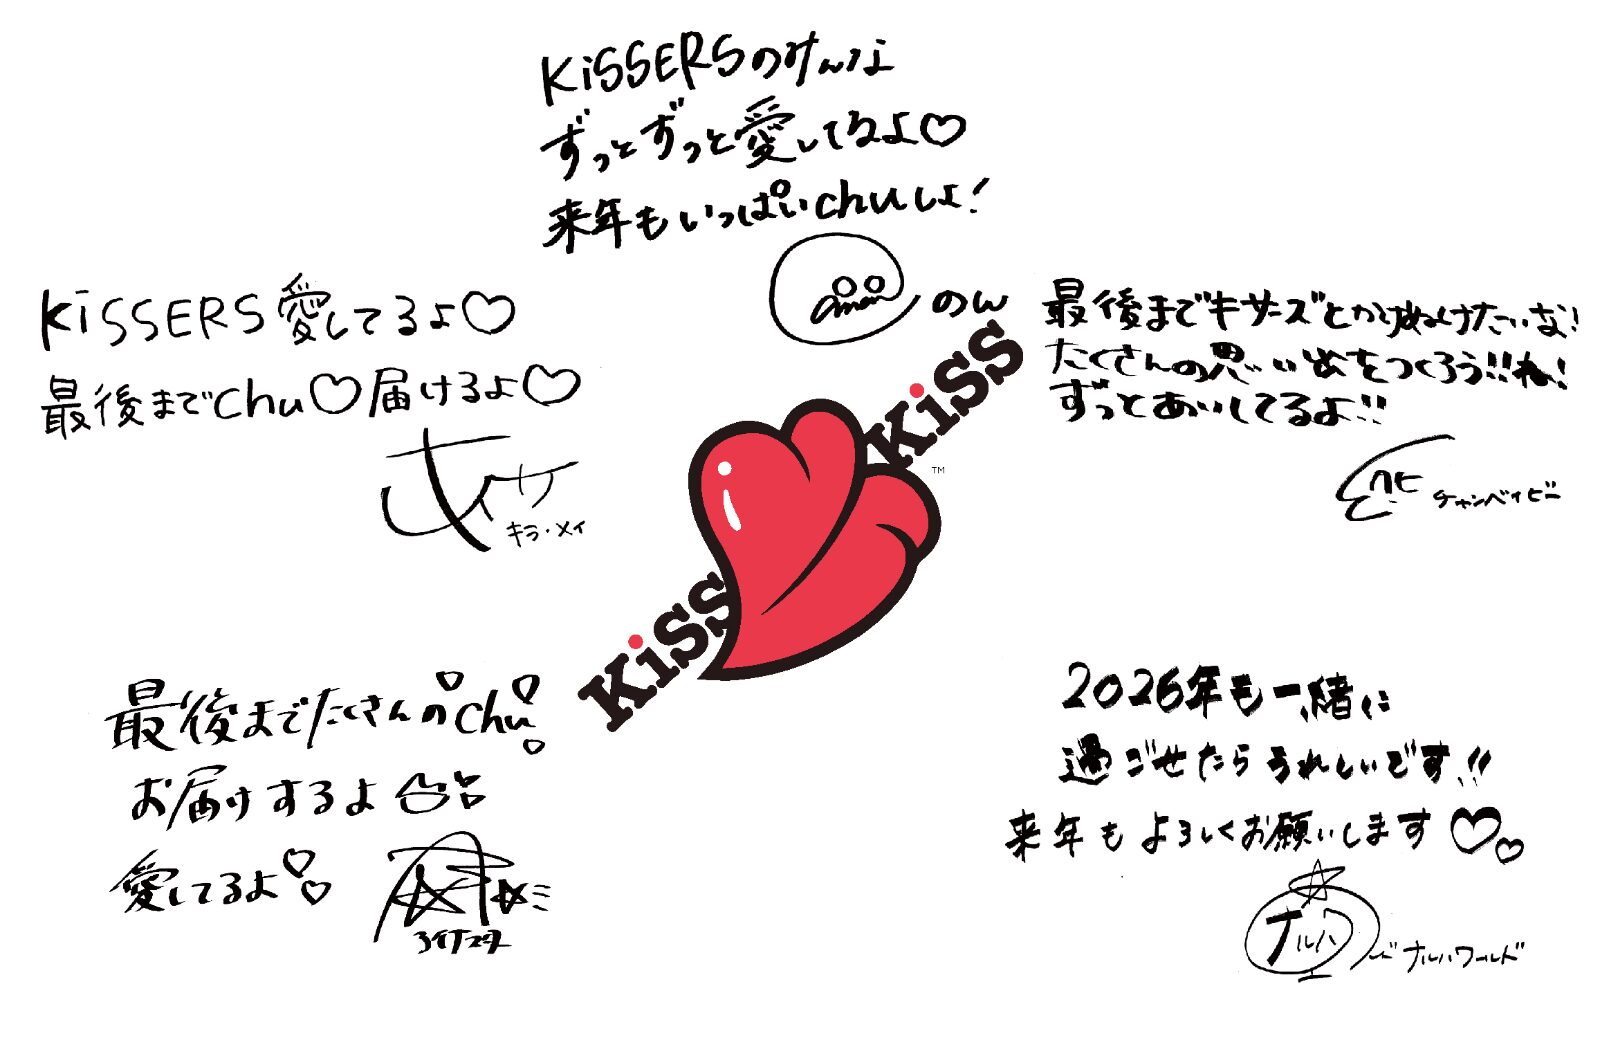 KiSSERSのみんな
ずっとずっと愛してるよ♡
来年もいっぱいchuしよ!
のん
KiSSERS愛してるよ♡
最後までchu♡届けるよ♡
キラ・メイ
最後までキサーズとかけぬけたいな!
たくさんの思い出をつくろう!!ね!
ずっとあいしてるよ!!
チャンベイビー
KiSS
KiSS
TM
最後までたくさんのchu
お届けするよ
愛してるよ
2026年も一緒に
過ごせたらうれしいです!!
来年もよろしくお願いします♡♡
ナルハ
ナルハワールド